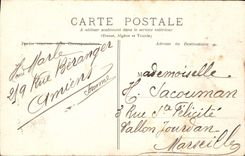 CARTE POSTALE
A utiliser seulement dans le service intérieur
(France, Algérie et Tunisie)
Partie réservée à la Correspondance
Adresse du Destinataire
H. Marle
219 Rue Béranger
Amiens
Somme
Mademoiselle
H. Jacouman
3 Rue Ste Félicité
Vallon Jourdan
Marseille